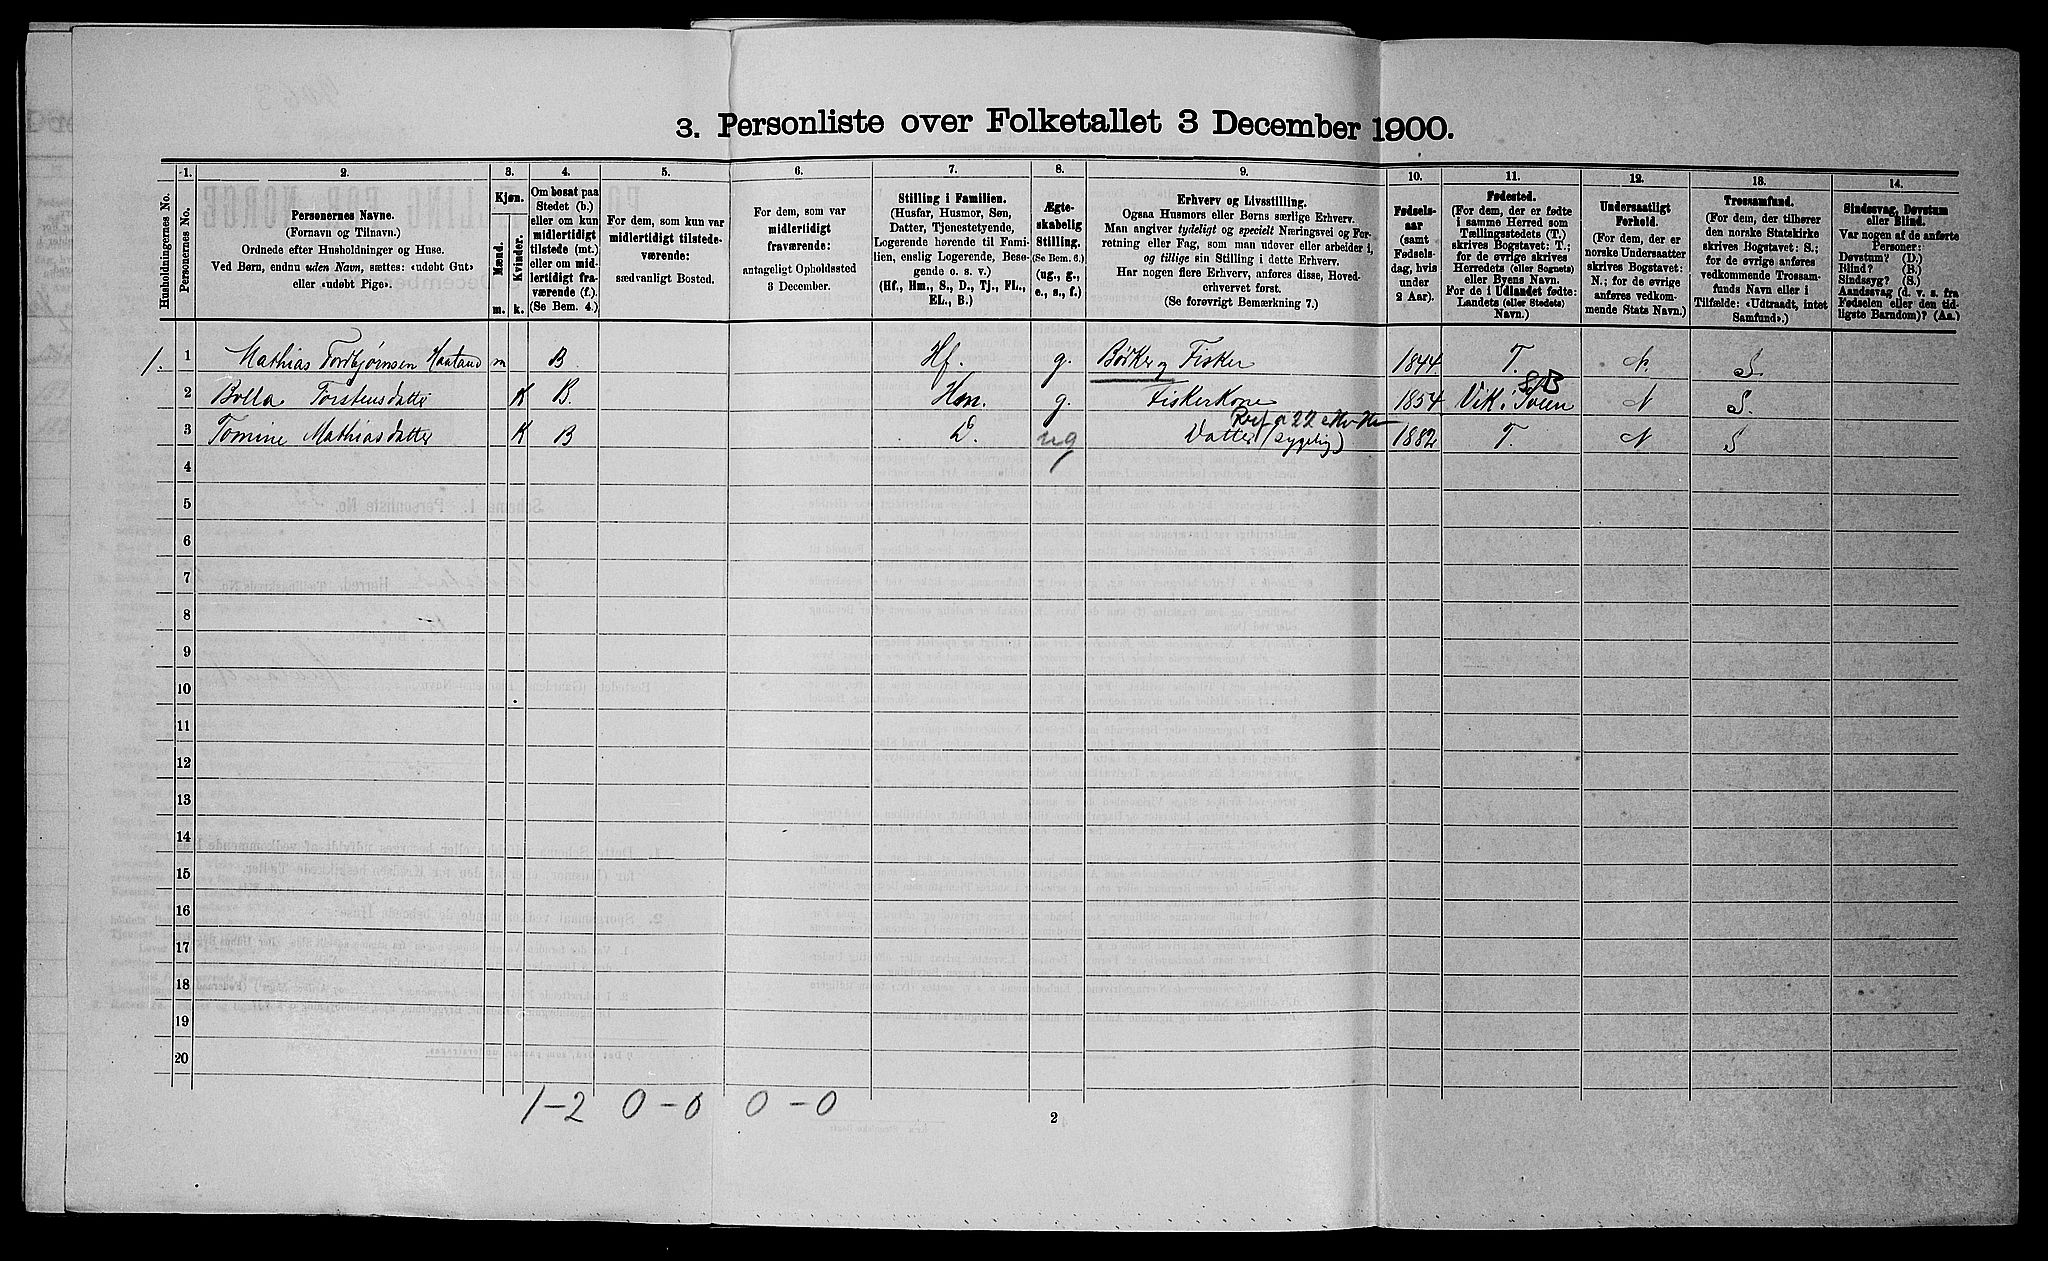 3. Personliste over Folketallet 3 December 1900.
Husholdningernes No.
1.
Personernes No.
2.
Personernes Navne.
(Fornavn og Tilnavn.)
Ordnede efter Husholdninger og Huse.
Ved Børn, endnu uden Navn, sættes: «udøbt Gut»
eller «udøbt Pige».
3.
Kjøn.
Mænd.
Kvinder.
m.
k.
4.
Om bosat paa
Stedet (b.)
eller om kun
midlertidigt
tilstede (mt.)
eller om mid-
lertidigt fra-
værende (f.).
(Se Bem. 4.)
5.
For dem, som kun var
midlertidigt tilstede-
værende:
sædvanligt Bosted.
6.
For dem, som var
midlertidigt
fraværende:
antageligt Opholdssted
3 December.
7.
Stilling i Familien.
(Husfar, Husmor, Søn,
Datter, Tjenestetyende,
Logerende hørende til Fami-
lien, enslig Logerende, Besø-
gende o. s. v.)
(Hf., Hm., S., D., Tj., FL.,
EL., B.)
8.
Ægte-
skabelig
Stilling.
(Se Bem. 6.)
(ug., g.,
e., s., f.)
9.
Erhverv og Livsstilling.
Ogsaa Husmors eller Børns særlige Erhverv.
Man angiver tydeligt og specielt Næringsvei og For-
retning eller Fag, som man udøver eller arbeider i,
og tillige sin Stilling i dette Erhverv.
Har nogen flere Erhverv, anføres disse, Hoved-
erhvervet først.
(Se forøvrigt Bemærkning 7.)
10.
Fødsels-
aar
(samt
Fødsels-
dag, hvis
under
2 Aar).
11.
Fødested.
(For dem, der er fødte
i samme Herred som
Tællingsstedets (T.)
skrives Bogstavet: T.;
for de øvrige skrives
Herredets (eller Sognets)
eller Byens Navn.
For de i Udlandet fødte:
Landets (eller Stedets)
Navn.)
12.
Undersaatligt
Forhold.
(For dem, der er
norske Undersaatter
skrives Bogstavet:
N.; for de øvrige
anføres vedkom-
mende Stats Navn.)
13.
Trossamfund.
(For dem, der tilhører
den norske Statskirke
skrives Bogstavet: S.;
for de øvrige anføres
vedkommende Trossam-
funds Navn eller i
Tilfælde: «Udtraadt, intet
Samfund».)
14.
Sindssvag, Døvstum
eller Blind.
Var nogen af de anførte
Personer:
Døvstum? (D.)
Blind? (B.)
Sindssyg? (S.)
Aandssvag (d. v. s. fra
Fødselen eller den tid-
ligste Barndom)? (Aa.)
1. 1 Mathias Tordbjørnsen Haaland m B Hf. g. Bødker og Fisker 1844 T. N. S.
2 Bolla Torstensdatter K B. Hm. g. Fiskerkone 1854 Vik. N S.
3 Tomine Mathiasdatter K B D ug Datter (sygelig) 1882 T. N S
4
5
6
7
8
9
10
11
12
13
14
15
16
17
18
19
20
1–2 0–0 0–0
2